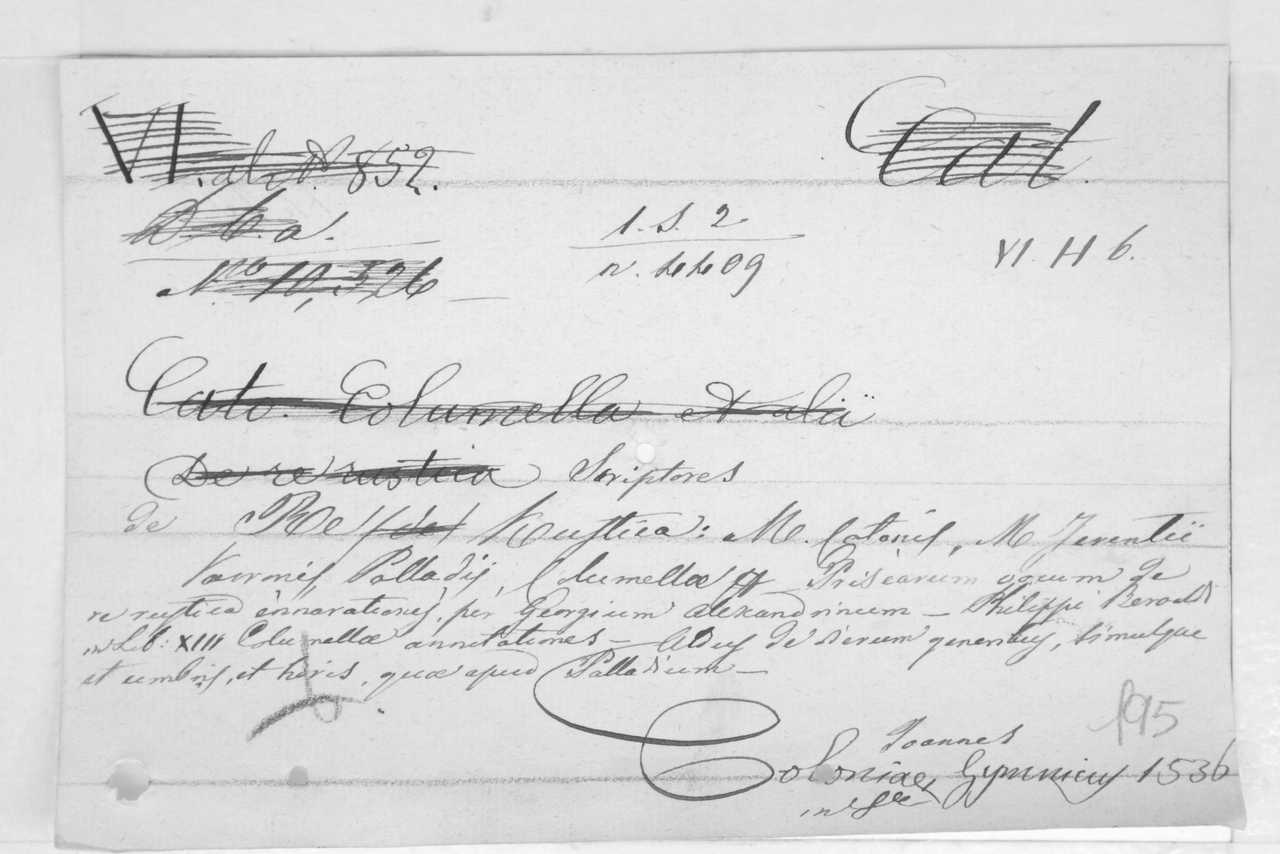 VI. alt N. 852.
Cat.
D. b. a.
1. S. 2
VI H 6.
Nro 10,526
n. 4409
Cato. Columella et alii
De re rustica Scriptores
de Re Rustica: M. Catonis, M Terentii
Varronis, Palladij, Columellæ Priscarum vocum de
re rustica ennarationes, per Georgium alexandrinum — Philippi Beroaldi
in Lib: XIII Columellæ annotationes — Aldus de dierum generibus, simulque
et umbris, et horis, quæ apud Palladium —
195
Joannes
Coloniae, Gymnicus 1536
in 8º